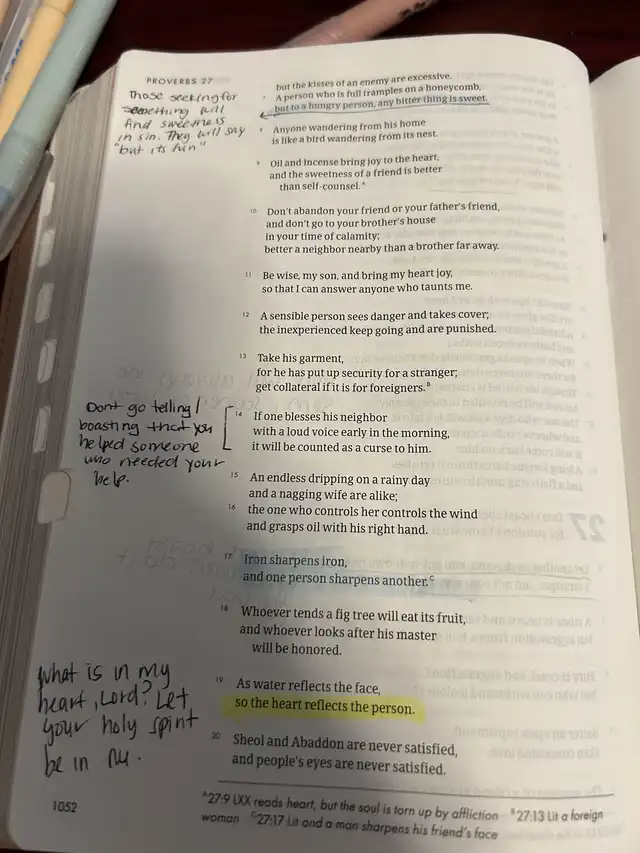 PROVERBS 27
Those seeking for
something will
find sweetness
in sin. They will say
"but its fun"
but the kisses of an enemy are excessive.
7 A person who is full tramples on a honeycomb,
but to a hungry person, any bitter thing is sweet.
8 Anyone wandering from his home
is like a bird wandering from its nest.
9 Oil and incense bring joy to the heart,
and the sweetness of a friend is better
than self-counsel.A
10 Don't abandon your friend or your father's friend,
and don't go to your brother's house
in your time of calamity;
better a neighbor nearby than a brother far away.
11 Be wise, my son, and bring my heart joy,
so that I can answer anyone who taunts me.
12 A sensible person sees danger and takes cover;
the inexperienced keep going and are punished.
13 Take his garment,
for he has put up security for a stranger;
get collateral if it is for foreigners.B
Dont go telling/
boasting that you
helped someone
who needed your
help.
14 If one blesses his neighbor
with a loud voice early in the morning,
it will be counted as a curse to him.
15 An endless dripping on a rainy day
and a nagging wife are alike;
16 the one who controls her controls the wind
and grasps oil with his right hand.
17 Iron sharpens iron,
and one person sharpens another.C
18 Whoever tends a fig tree will eat its fruit,
and whoever looks after his master
will be honored.
What is in my
heart, Lord? Let
your holy spirit
be in me.
19 As water reflects the face,
so the heart reflects the person.
20 Sheol and Abaddon are never satisfied,
and people's eyes are never satisfied.
1052
A27:9 LXX reads heart, but the soul is torn up by affliction B27:13 Lit a foreign
woman C27:17 Lit and a man sharpens his friend's face